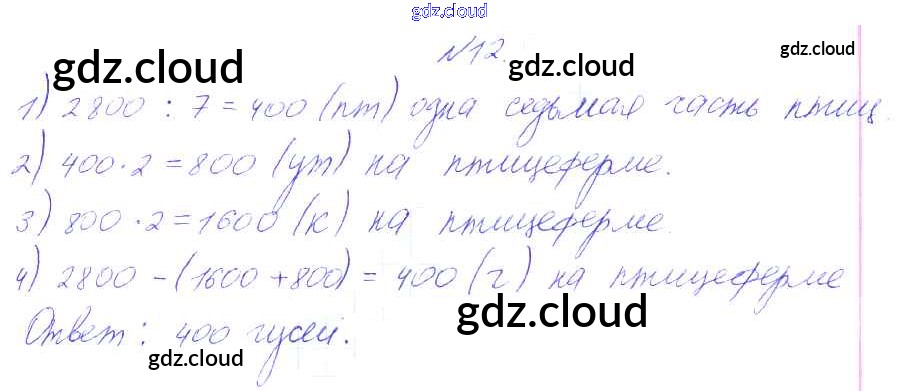 gdz.cloud
№12.
gdz.cloud gdz.cloud gdz.cloud
1) 2800 : 7 = 400 (пт) одна седьмая часть птиц.
2) 400 · 2 = 800 (ут) на птицеферме.
3) 800 · 2 = 1600 (к) на птицеферме.
4) 2800 - (1600 + 800) = 400 (г) на птицеферме
gdz.cloud
Ответ: 400 гусей.
gdz.cloud gdz.cloud